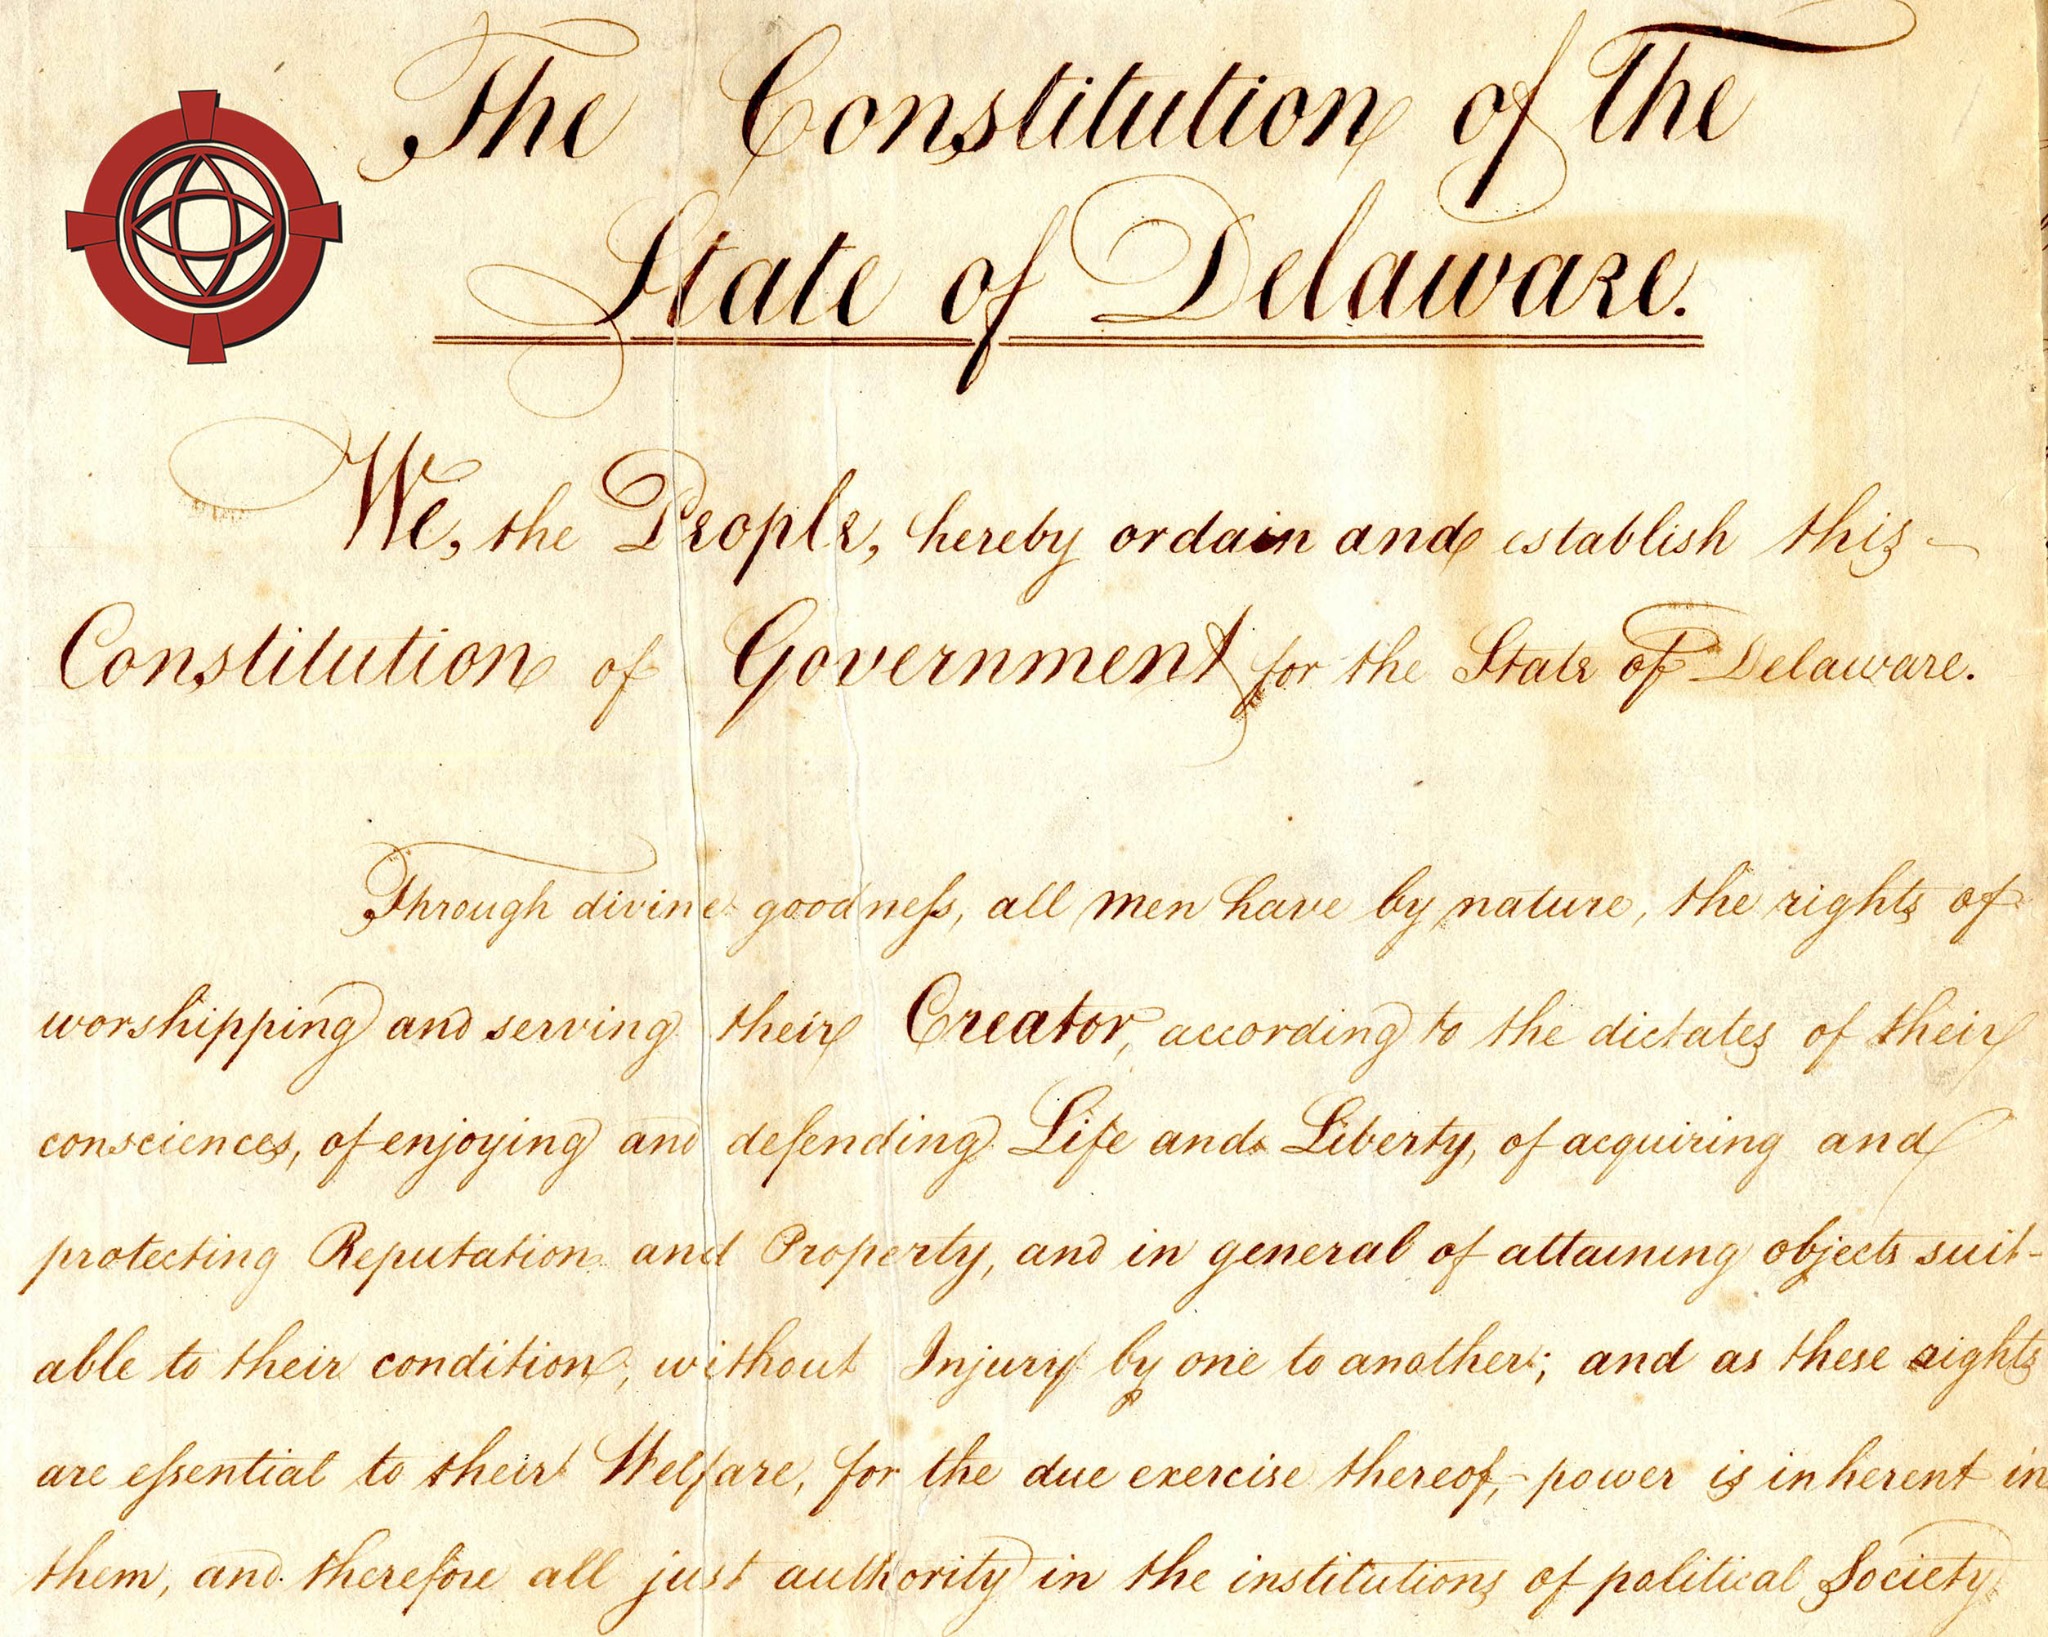 The Constitution of The
State of Delaware.
We, the People, hereby ordain and establish this
Constitution of Government for the State of Delaware.
Through divine goodness, all men have by nature, the rights of
worshipping and serving their Creator, according to the dictates of their
consciences, of enjoying and defending Life and Liberty, of acquiring and
protecting Reputation and Property, and in general of attaining objects suit-
able to their condition, without Injury by one to another; and as these rights
are essential to their Welfare, for the due exercise thereof, power is inherent in
them, and therefore all just authority in the institutions of political Society